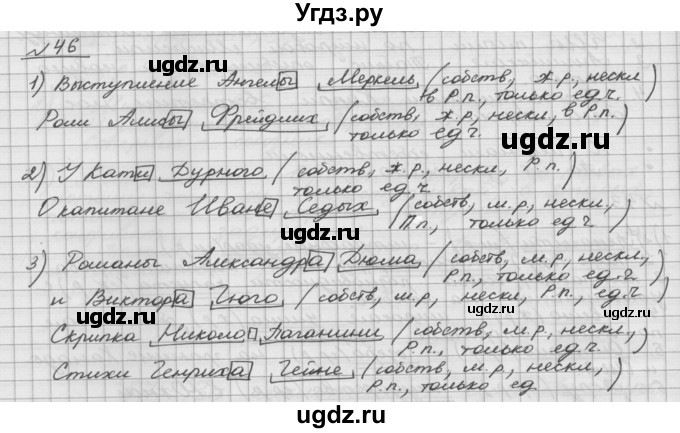 Угдз.ру
№ 46
1) Выступление Ангелы Меркель (собств, ж.р., нескл
в Р.п., только ед.ч.)
Роли Алисы Фрейдлих (собств, ж.р, нескл, в Р.п.,
только ед.ч.)
2) У Кати Дурного (собств, ж.р., нескл, Р.п.,
только ед.ч.)
О капитане Иване Седых (собств, м.р, нескл,
П.п., только ед.ч.)
3) Романы Александра Дюма (собств., м.р, нескл.,
Р.п., только ед.ч.)
и Виктора Гюго (собств, м.р, нескл, Р.п., ед.ч.)
Скрипка Николо Паганини (собств, м.р, нескл,
Р.п., только ед.ч.)
Стихи Генриха Гейне (собств., м.р, нескл.,
Р.п., только ед)
ugdz.ru
ugdz.ru
ugdz.ru
ugdz.ru
ugdz.ru
ugdz.ru
ugdz.ru
ugdz.ru
ugdz.ru